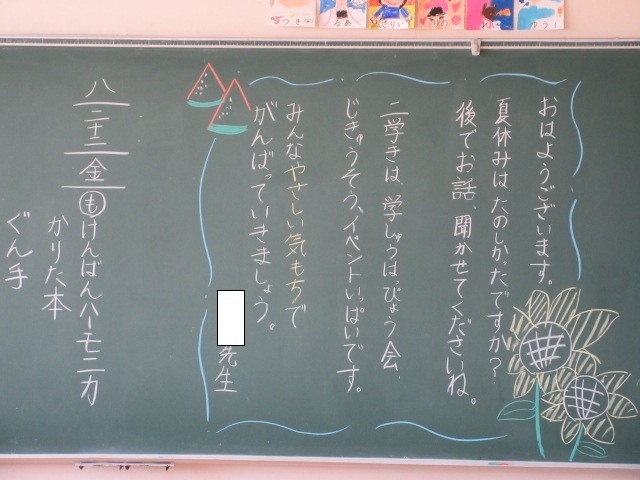 おはようございます。
夏休みは、たのしかったですか？
後でお話、聞かせてくださいね。
二学きは、学しゅうはっぴょう会、
じきゅうそう、イベントいっぱいです。
みんなやさしい気もちで
がんばっていきましょう。
先生
八
二十二
金
も けんばんハーモニカ
かりた本
ぐん手